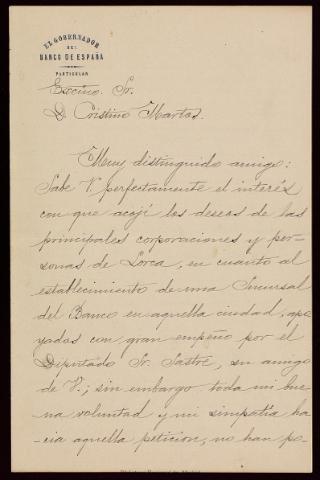 EL GOBERNADOR
DEL
BANCO DE ESPAÑA
PARTICULAR
Excmo. Sr.
D Cristino Martos.
Muy distinguido amigo:
Sabe V. perfectamente el interés
con que acojí los deseos de las
principales corporaciones y per-
sonas de Lorca, en cuanto al
establecimiento de una Sucursal
del Banco en aquella ciudad, apo
yados con gran empeño por el
Diputado Sr. Sastre, su amigo
de V.; sin embargo toda mi bue
na voluntad y mi simpatía ha-
cia aquella peticion, no han po-
Biblioteca Nacional de Madrid